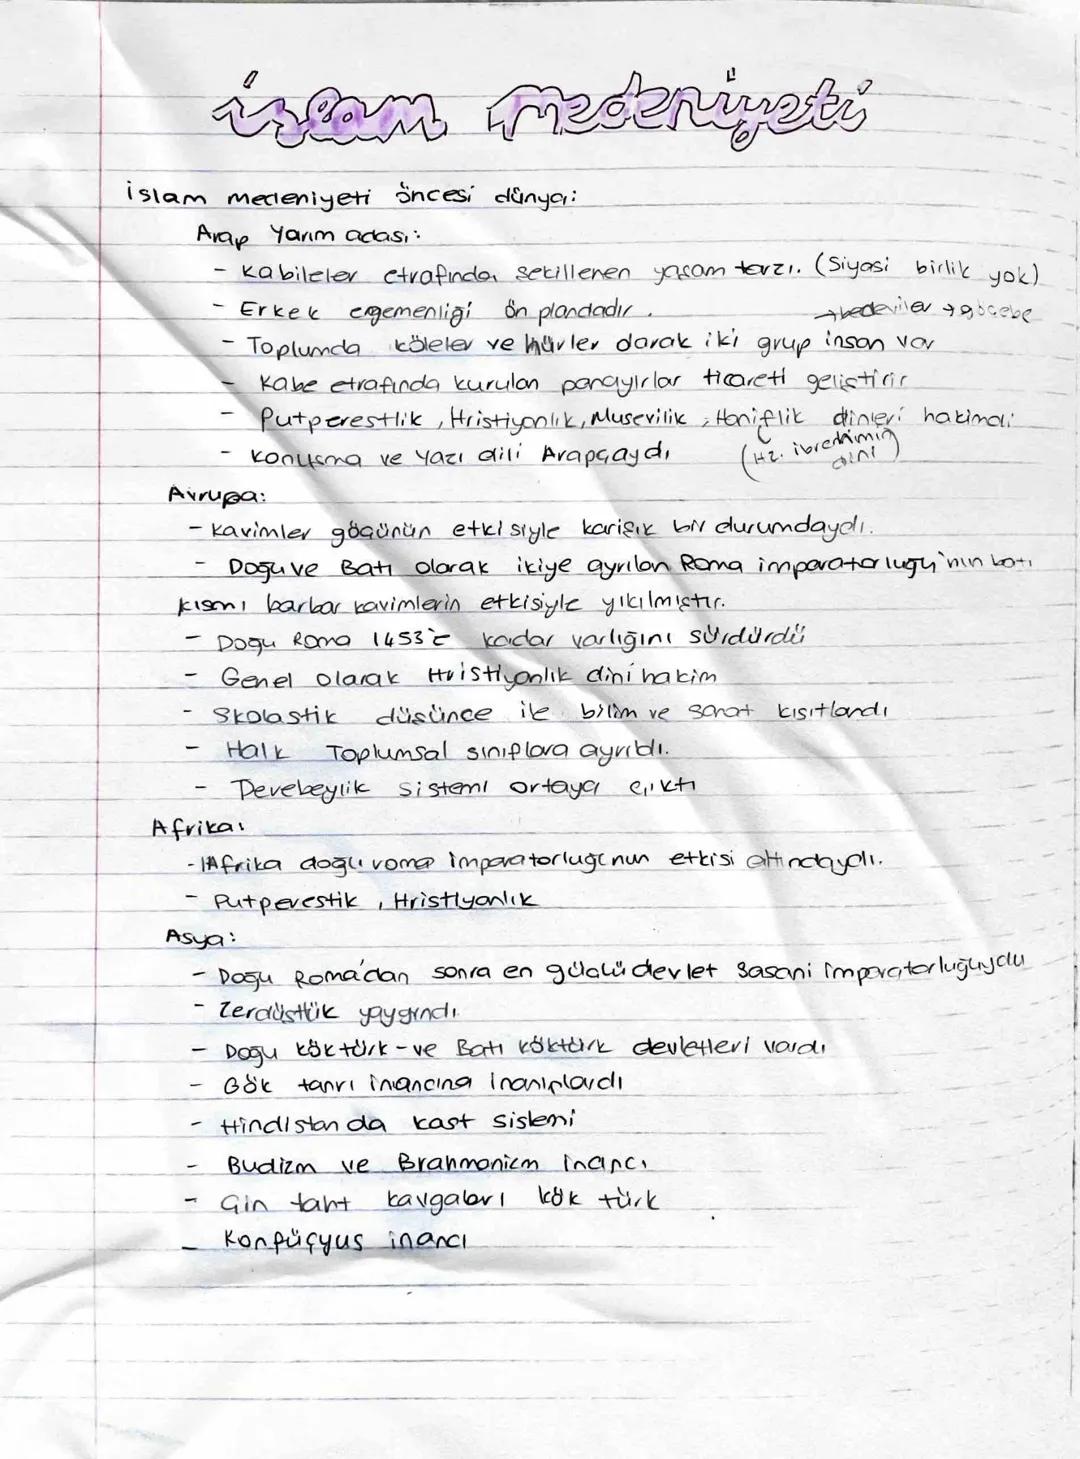 islam medeniyeti
islam medeniyeti öncesi dünya:
Arap Yarım adası:
- Kabileler etrafında şekillenen yaşam tarzı. (Siyasi birlik yok)
- Erkek egemenliği ön plandadır.
→bedeviler →göçebe
- Toplumda köleler ve hürler olarak iki grup insan var
- Kabe etrafında kurulan panayırlar ticareti geliştirir
- Putperestlik, Hristiyanlık, Musevilik, Haniflik dinleri hakimdi
(Hz. ibrahimin dini)
- Konuşma ve Yazı dili Arapçaydı
Avrupa:
- Kavimler göçünün etkisiyle karışık bir durumdaydı.
- Doğu ve Batı olarak ikiye ayrılan Roma imparatorluğu'nın batı
kısmı barbar kavimlerin etkisiyle yıkılmıştır.
- Doğu Roma 1453'e kadar varlığını sürdürdü
- Genel olarak Hristiyanlık dini hakim
- Skolastik düşünce ile bilim ve sanat kısıtlandı
- Halk Toplumsal sınıflara ayrıldı.
- Derebeylik sistemi ortaya çıktı
Afrika:
- Afrika doğu roma imparatorluğunun etkisi altındaydı.
- Putperestik, Hristiyanlık
Asya:
- Doğu Roma'dan sonra en güçlü devlet Sasani imparatorluğuydu
- Zerdüştlük yaygındı
- Doğu köktürk - ve Batı köktürk devletleri vardı
- Gök tanrı inancına inanıplardı
- Hindistan da kast sistemi
- Budizm ve Brahmanizm inancı
- Çin taht kavgaları kök türk
- Konfüçyus inancı